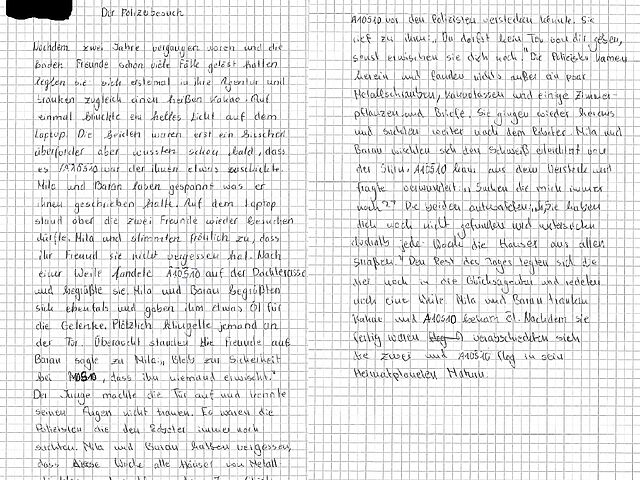 Der Polizeibesuch
Nachdem zwei Jahre vergangen waren und die
beiden Freunde schon viele Fälle gelöst hatten
legten sie sich erstemal in ihre Agentur und
tranken zugleich einen heißen Kakao. Auf
einmal blinkte ein helles Licht auf dem
Laptop. Die beiden waren erst ein bisschen
überfordert aber wussten schon bald, dass
es A10510 war der ihnen etwas schickte.
Mila und Baran lasen gespannt was er
ihnen geschrieben hatte. Auf dem Laptop
stand aber die zwei Freunde wieder besuchen
dürfte. Mila und stimmten fröhlich zu, dass
ihr Freund sie nicht vergessen hat. Nach
einer Weile landete A10510 auf der Dachterasse
und begrüßte sie. Mila und Baran begrüßten
sich ebenfals und gaben ihm etwas Öl für
die Gelenke. Plötzlich klingelte jemand an
der Tür. Überascht standen die freunde auf
Baran sagte zu Mila: „Bleib zur Sicherheit
bei A10510, dass ihn niemand erwischt."
Der Junge machte die Tür auf und konnte
seinen Augen nicht trauen. Es waren die
Polizisten die den Roboter immer noch
suchten. Mila und Baran hatten vergessen,
dass diese Woche alle Häuser von Metall-
A10510 vor den Polizisten verstecken könnte. Sie
rief zu ihm: „Du darfst kein Ton von dir geben,
sonst erwischen sie dich noch." Die Polizisten kamen
herein und fanden nichts außer ein paar
Metallschrauben, Kakaotassen und einige Zimmer-
pflanzen und Briefe. Sie gingen wieder heraus
und suchten weiter nach dem Roboter. Mila und
Baran wischten sich den Schweiß erleichtert von
der Stirn. A10510 kam aus dem Versteck und
fragte verwundert: „Suchen die mich immer
noch?" Die beiden antworteten: „Sie haben
dich noch nicht gefunden und untersuchen
deshalb jede Woche die Häuser aus allen
straßen." Den Rest des Tages legten sich die
vier noch in die Glücksagentur und redeten
noch eine Weile Mila und Baran tranken
Kakao und A10510 bekam Öl. Nachdem sie
fertig waren verabschiedeten sich
die zwei und A10510 flog in sein
Heimatplaneten